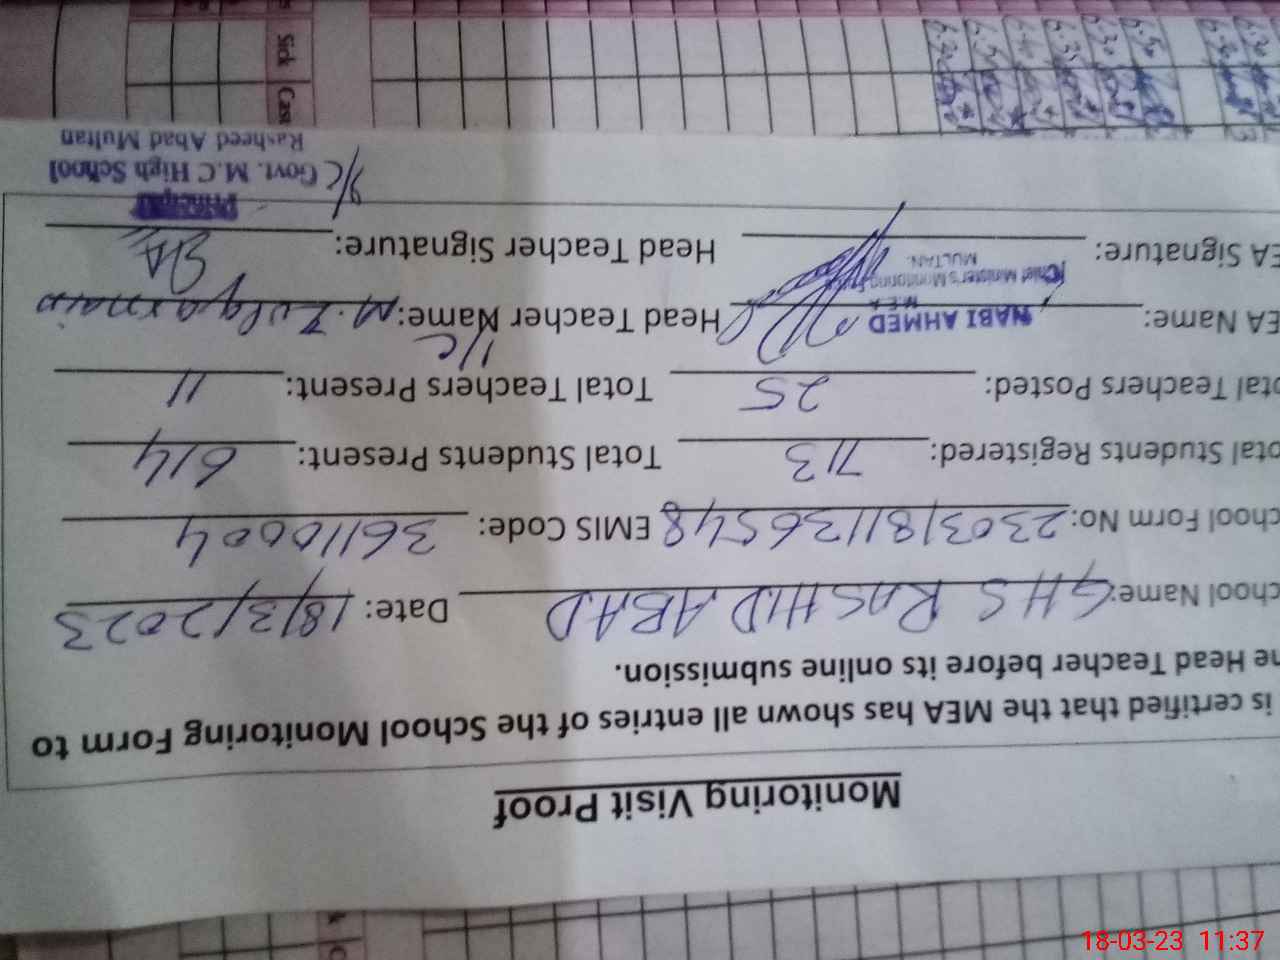 Monitoring Visit Proof
is certified that the MEA has shown all entries of the School Monitoring Form to
he Head Teacher before its online submission.
chool Name: GHS RASHID ABAD Date: 18/3/2023
chool Form No: 230318113654548 EMIS Code: 36110004
otal Students Registered: 713 Total Students Present: 614
otal Teachers Posted: 25 Total Teachers Present: 11
EA Name: NABI AHMED Head Teacher Name: M. Zulqarnain
I/C
M.E.A
(Chief Minister's Monitoring Force)
MULTAN.
EA Signature: Head Teacher Signature:
Principal
I/C Govt. M.C High School
Rasheed Abad Multan
Sick Cas
18-03-23 11:37